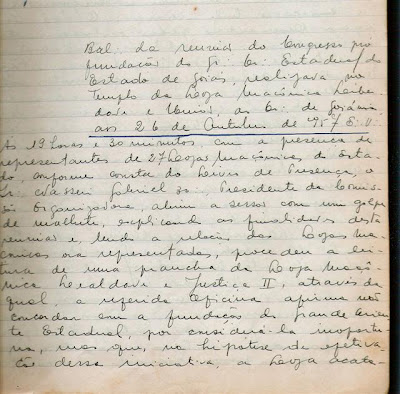 Bal. da reunião do Congresso pro
fundação do Gr. Or. Estadual do
Estado de Goiás, realizada no
Templo da Loja Maçônica Liber-
dade e União, ao Or. de Goiânia
aos 26 de Outubro de 1957 E. V.
As 19 horas e 30 minutos, com a presença de
representantes de 27 Lojas Maçônicas do Esta-
do, conforme consta do Livro de Presença, o
Ir. Wassen Gabriel 30, Presidente da Comis-
são Organizadora, abriu a sessão com um golpe
de malhete, explicando as finalidades desta
reunião e, lendo a relação das Lojas Ma-
çônicas ora representadas, procedeu a lei-
tura de uma prancha da Loja Maçô-
nica Lealdade e Justiça II, através da
qual, a referida Oficina afirma não
concordar com a fundação do grande Orien-
te Estadual, por considerá-la inoportu-
na, mas que, na hipótese da efetiva-
ção dessa iniciativa, a Loja acata-